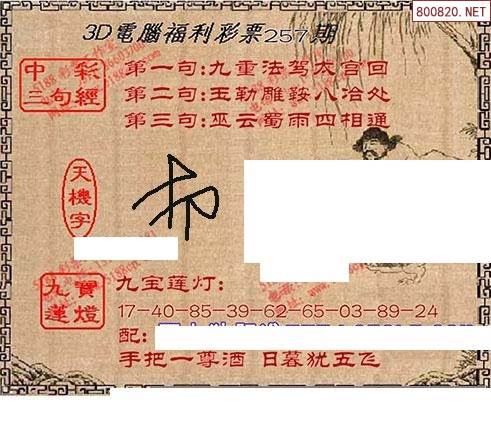 800820.NET
3D電腦福利彩票257期
中彩
三句經
第一句:九重法驾太宫回
第二句:玉勒雕鞍八治处
第三句:巫云蜀雨四相通
天機字
九寶
蓮燈
九宝莲灯:
17-40-85-39-62-65-03-89-24
配:
手把一尊酒 日暮犹五飞